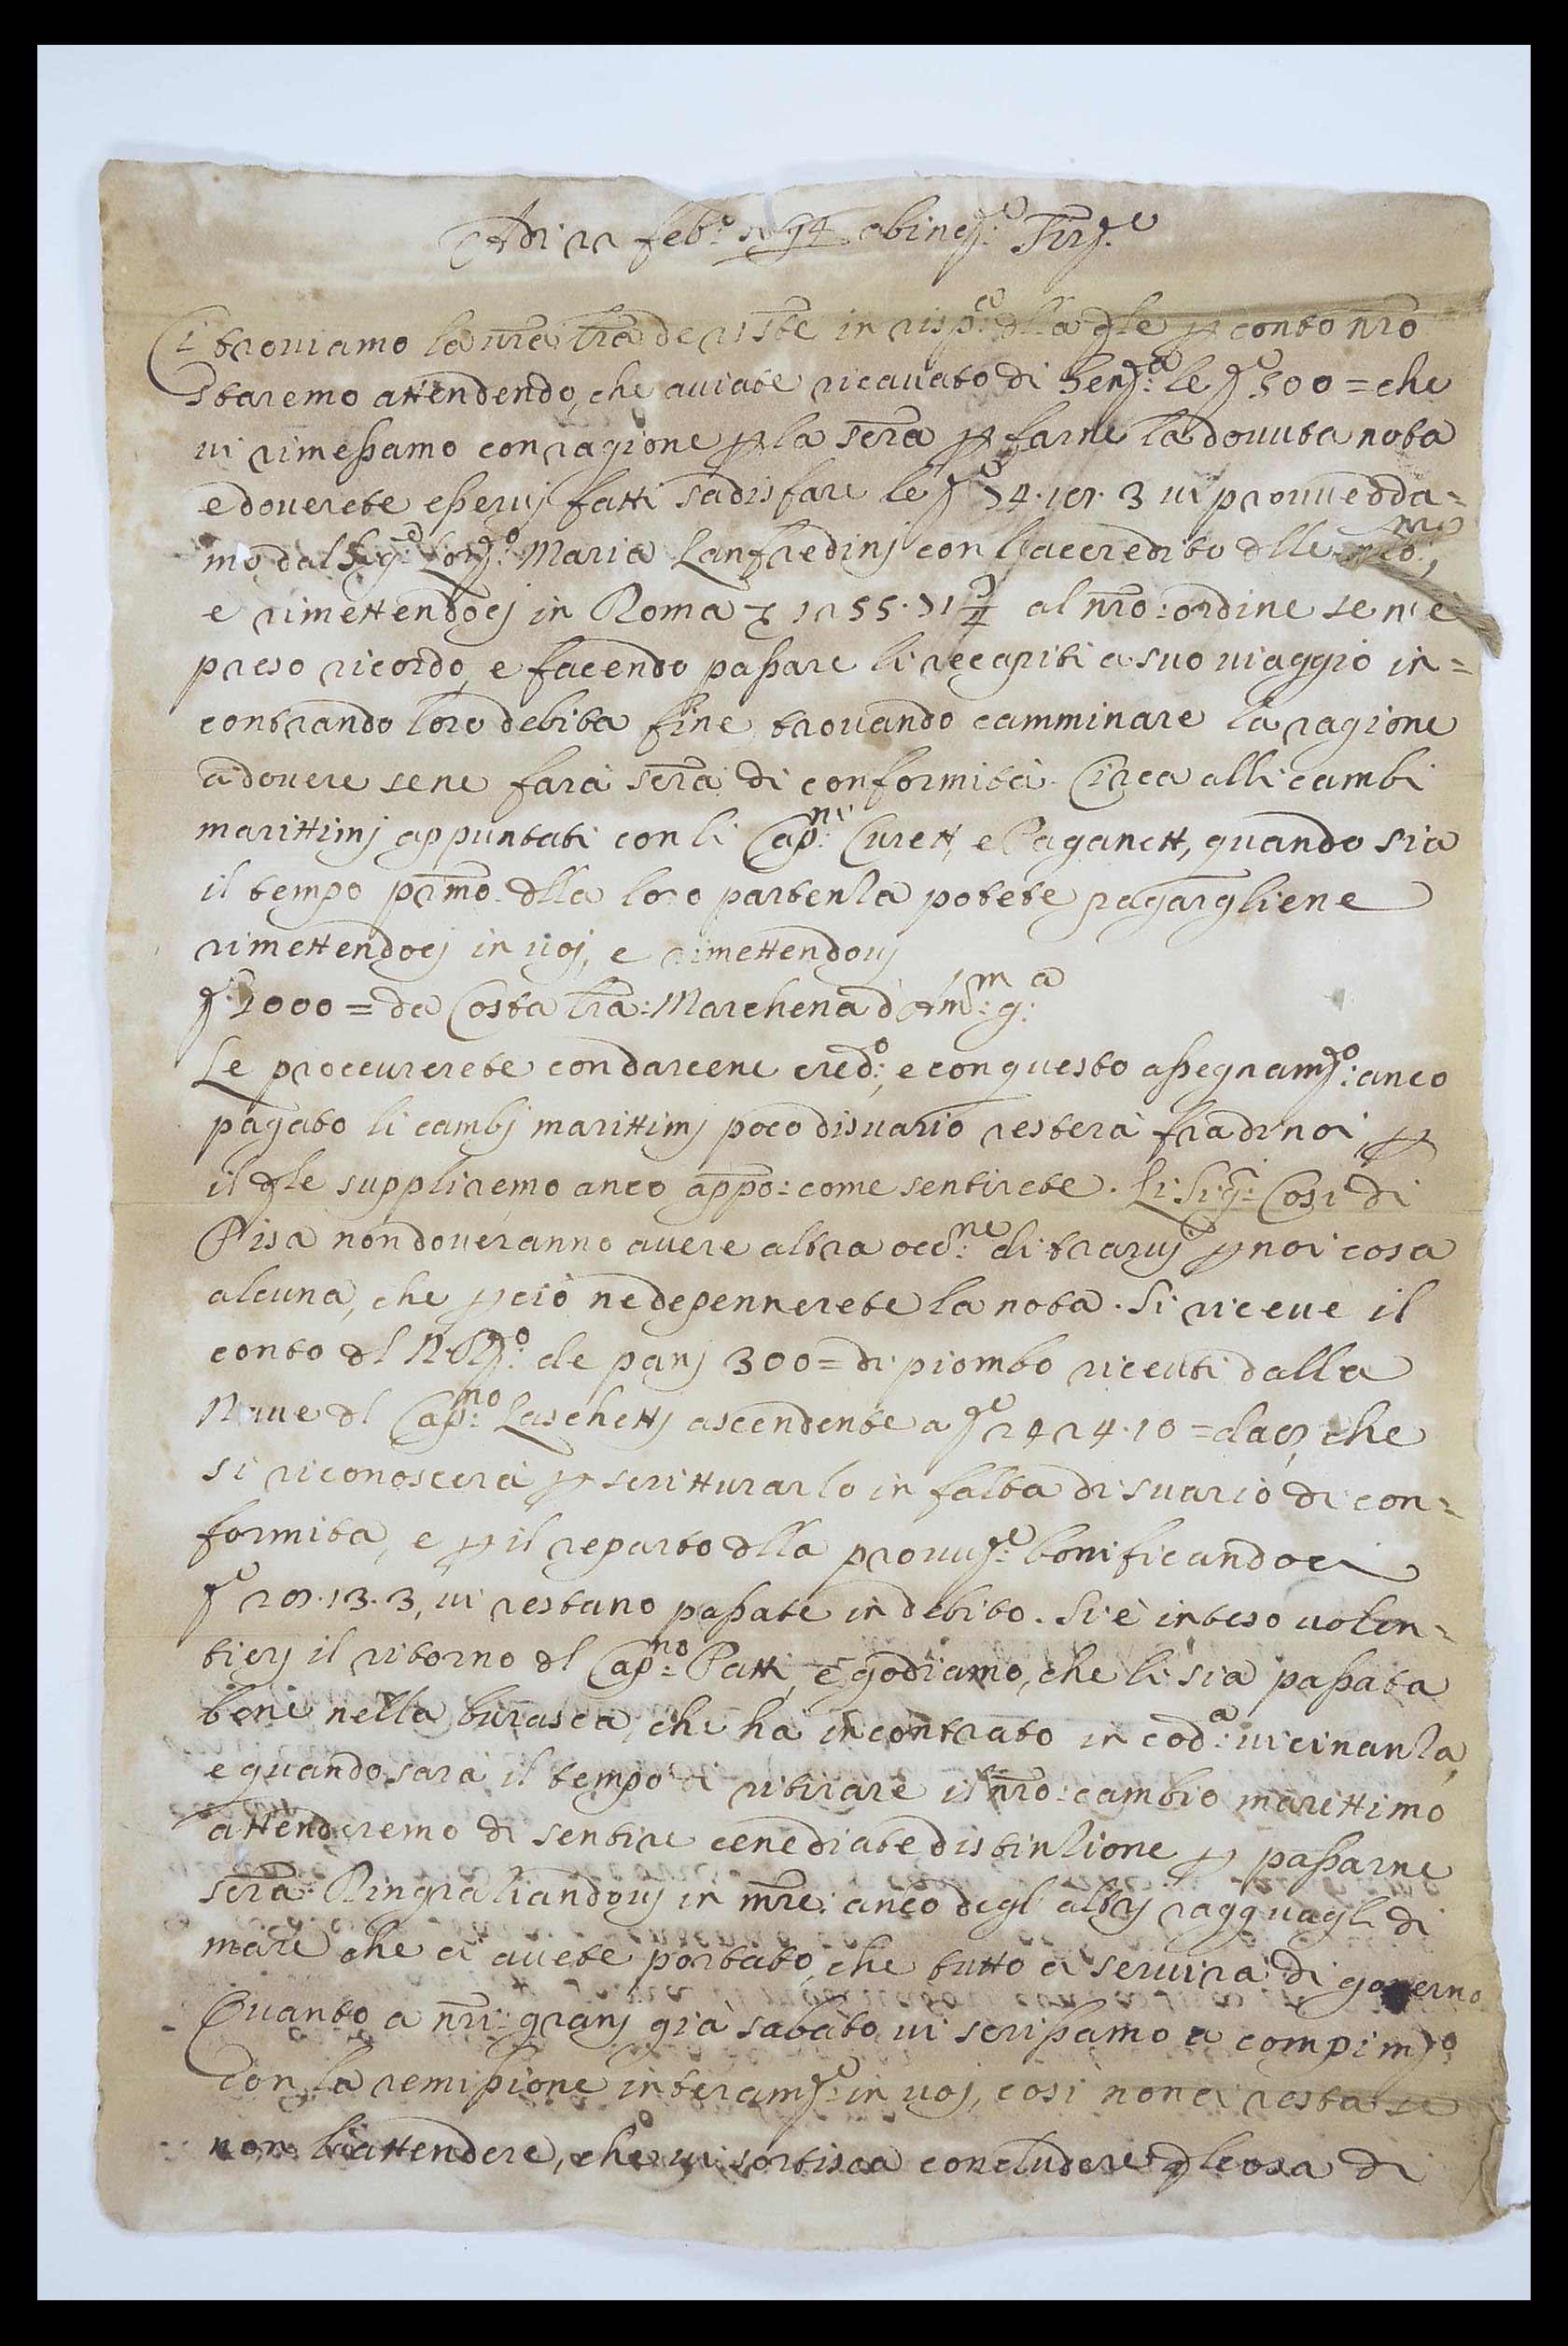 Adi 22 feb:o 1694 ab inc:e Firẽ
Ci troviamo la vr̃a lr̃a de 21 stẽ in risp:ta dlla qle p conto nr̃o
staremo attendendo, che aviate ricavato di le 500 = che
vi rimessamo con ragione p la serr̃a p farne la dovuta nota
e doverete esservj fatti sadisfare le 74. 19. 3 vi provvedda=
mo dal Sig:e Lorz:o Maria Lanfredinj con l'accredito dlle
e rimettendocj in Roma 1255. 71 3/4 al nr̃o: ordine se n'è
preso ricordo, e facendo passare li recapiti a suo viaggio in=
contrando loro debita fine, trovando camminare la ragione
a dovere se ne farà serr̃a di conformità. Circa alli cambi
marittimj appuntati con li Cap:ni Curett, e Paganett, quando sia
il tempo prm̃o. dlla loro partenza potete pagargliene
rimettendocj in voj, e rimettendovj
1000 = da Costa lr̃a: Marchena d'Am:m g:a
Le proccurerete con darcene cred:o, e con questo assegnam:to: anco
pagato li cambj marittimj poco disvario resterà fra di noi, p
il qle suppliremo anco app̃o: come sentirete. Li Sig:ri Cosi di
Pisa non doveranno avere altra occ:ne di trarvj p noi cosa
alcuna, che p ciò ne depennerete la nota. Si riceve il
conto dl de panj 300 = di piombo riceuti dalla
Nave dl Cap:no Laschettj ascendente a 2424. 10 = da che
si riconoscerà p scritturarlo in falta disvario di con=
formita, e p il reparto dlla bonificandoci
29. 13. 3, vi restano passate in debito. Si è inteso volen=
tierj il ritorno dl Cap:no Patti, e godiamo, che li sia passata
bene nella burasca, che ha incontrato in cod:a vicinanza,
e quando sarà il tempo di ritirare il nr̃o: cambio marittimo
attenderemo di sentire cene diate distinzione p passarne
serr̃a: Ringraziandovj in mr̃e: anco degl'altrj ragguagli di
mare che ci avete portato, che tutto ci servirà di governo
Quanto a nr̃i: granj già sabato vi scrissamo a compim:to
con la remissione interam:te in voj, così non ci resta se
non l'attendere, che vi sortisca concludere qlcosa di